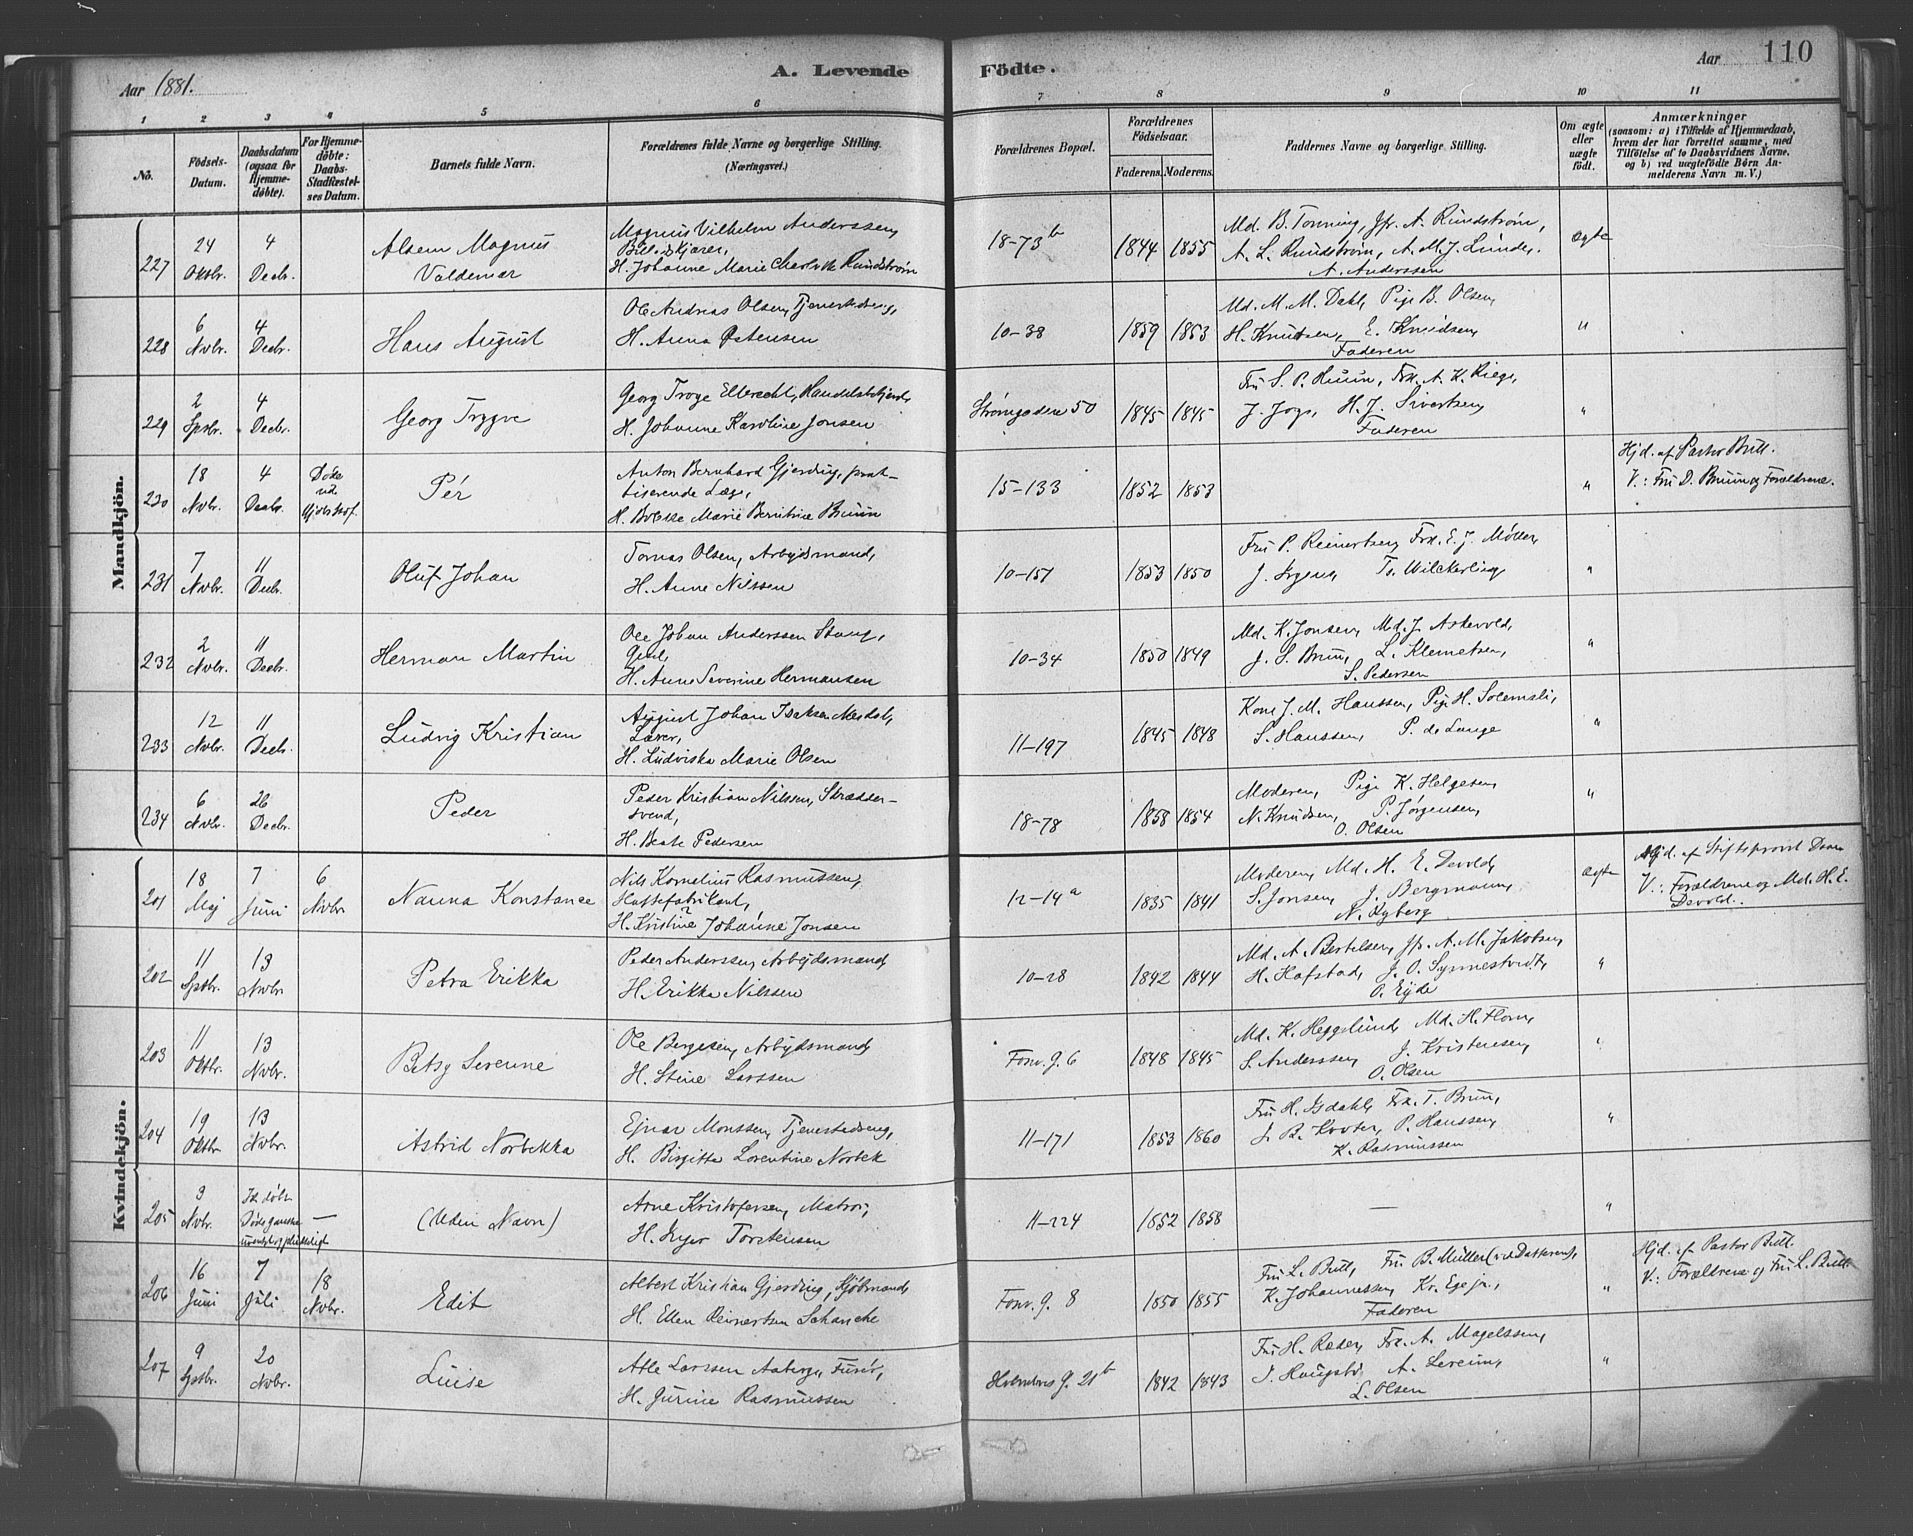 Aar 1881.
A. Levende Födte.
Aar 110
1 2 3 4 5 6 7 8 9 10 11
No.
Födsels-Datum.
Daabsdatum (ogsaa for Hjemme-döbte).
For Hjemme-döbte: Daabs-Stadfæstel-ses Datum.
Barnets fulde Navn.
Forældrenes fulde Navne og borgerlige Stilling.
(Næringsvei.)
Forældrenes Bopæl.
Forældrenes Födselsaar.
Faderens. Moderens.
Faddernes Navne og borgerlige Stilling.
Om ægte eller uægte födt.
Anmærkninger
(saasom: a) i Tilfælde af Hjemmedaab, hvem der har forrettet samme, med Tilföielse af to Daabsvidners Navne, og b) ved uægtefödte Börn An-melderens Navn m. V.)
Mandkjön.
227 24 Oktbr. 4 Decbr. Magnus Valdemar
Magnus Vilhelm Anderssen,
H. Johanne Marie Rundstrøm
18-73b 1844 1855
Md. B. Tonning, Jfr. A. Rundstrøm,
A. L. Rundstrøm, A. M. J. Lunde,
A. Anderssen
ægte
228 6 Nvbr. 4 Decbr. Hans August
Ole Andreas Olsen,
H. Anna Østensen
10-38 1859 1853
Md. M. M. Dahl, Pige B. Olsen,
H. Knutsen, E. Knudsen,
Faderen
"
229 2 Sptbr. 4 Decbr. Georg Trygve
Georg Troye Ellerecht,
H. Johanne Karoline Jonsen
Strømgaden 50 1845 1845
Fru S. P. Huun, Frk. A. K. Riege,
J. Joys, H. J. Sivertsen,
Faderen
"
230 18 Nvbr. 4 Decbr. Døde Per
Anton Bernhard Gjerding, prak-
tiserende Læge,
H. Bolette Marie Berntine Bruun
15-133 1852 1853
"
Hjd. af Pastor Bull.
V.: Fru D. Bruun og Forældrene.
231 7 Nvbr. 11 Decbr. Oluf Johan
Tomas Olsen, Arbejdsmand,
H. Anne Nilssen
10-151 1853 1850
Fru P. Reinertsen, Frk. E. J. Møller,
J. Irgens, Ts. Wilckerling
"
232 2 Nvbr. 11 Decbr. Herman Martin
Ole Johan Anderssen Stang,
H. Anne Severine Hermansen
10-34 1850 1849
Md. K. Jonsen, Md. J. Askevold,
J. S. Brun, L. Klemetsen,
S. Pedersen
"
233 12 Nvbr. 11 Decbr. Ludvig Kristian
August Johan Isaksen
H. Ludviska Marie Olsen
11-197 1845 1848
Kone J. M. Hanssen, Pige H. Solemsli,
S. Hanssen, P. de Lange
"
234 6 Nvbr. 26 Decbr. Peder
Peder Kristian Nilssen, Skrædder-
svend,
H. Beate Pedersen
18-78 1858 1854
Moderen, Pige K. Helgesen,
N. Knudsen, P. Jørgensen,
O. Olsen
"
Kvindekjön.
201 18 Maj 7 Juni 6 Nvbr. Nanna Konstance
Nils Kornelius Rasmussen,
Hattefabrikant,
H. Kristine Johanne Jonsen
12-14a 1835 1841
Moderen, Md. H. E. Devold,
S. Jonsen, J. Bergmann,
N. Nyberg
ægte
Hjd. af Stiftsprovst Daae
V.: Forældrene og Md. H. E.
Devold.
202 11 Sptbr. 13 Nvbr. Petra Erikka
Peder Anderssen, Arbejdsmand,
H. Erikka Nilssen
10-28 1842 1844
Md. A. Bertelsen, Jfr. A. M. Jakobsen,
H. Hafstad, J. O. Synnestvedt,
O. Eide
"
203 11 Oktbr. 13 Nvbr. Betsy Severine
Ole Bergesen, Arbejdsmand,
H. Stine Larssen
Fonv. g. 6 1848 1845
Md. K. Heggelund, Md. H. Flom,
S. Anderssen, J. Kristensen,
O. Olsen
"
204 19 Oktbr. 13 Nvbr. Astrid Norbekka
Ejnar Monssen,
H. Birgitte Lorentine Norbek
11-171 1853 1860
Fru H. Isdahl, Frk. T. Brun,
J. B. P. Hanssen,
K. Rasmussen
"
205 3 Nvbr. Ik døbt Døde ganske — (Uden Navn)
Arne Kristofersen, Matros,
H. Inger Torstensen
11-224 1852 1858
—
"
206 16 Juni 7 Juli 18 Nvbr. Edit
Albert Kristian Gjerding, Kjøbmand,
H. Ellen Reinertsen Schancke
Fonv. g. 8 1850 1855
Fru L. Bull, Fru B. Müller
K. Johannessen, Kr. Ege jr.,
Faderen
"
Hjd. af Pastor Bull.
V.: Forældrene og Fru L. Bull
207 9 Sptbr. 20 Nvbr. Luise
Atle Larssen Aaberge,
H. Jurine Rasmussen
g. 21b 1842 1843
Fru H. Reder, Frk. A. Magelssen,
J. Haugsbø, A. Lereim,
L. Olsen
"